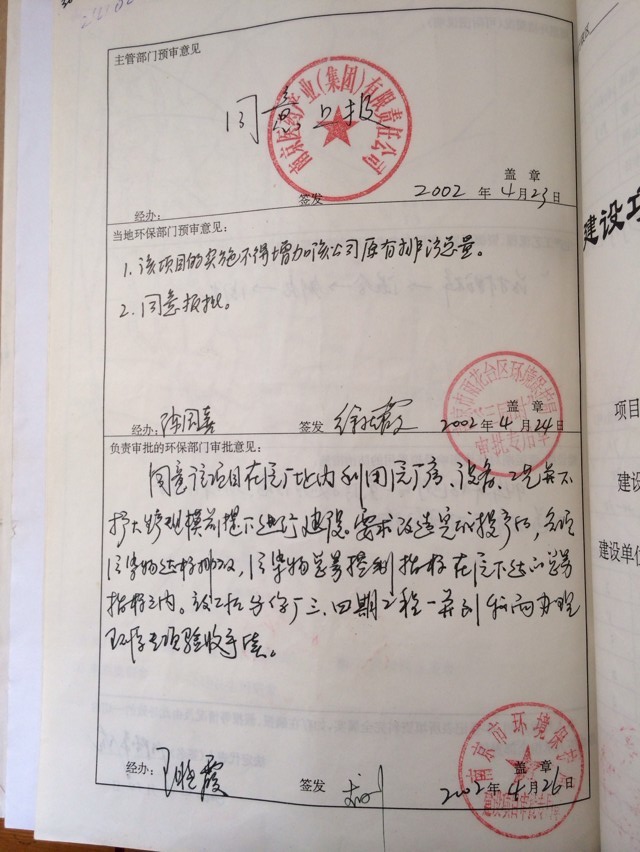 主管部门预审意见
同意上报
产业(集团)有限责任公司
盖 章
经办:
签发
2002 年 4月23日
当地环保部门预审意见:
1. 该项目的实施不得增加该公司原有排污总量。
2. 同意报批。
雨花台区环境保护局
审批专用章
盖 章
经办:
签发
2002年 4月24日
负责审批的环保部门审批意见:
同意该项目在原厂址内利用原厂房、设备、工艺并不
扩大跨规模前提下进行建设。要求改造完成投产后,各项
污染物达标排放,污染物总量控制指标在原下达的总量
指标之内。该工程与你厂三、四期工程一并到我局办理
环保专项验收手续。
南京市环境保护
盖 章
经办:
王晓霞
签发
2002年 4月26日
建设项
项目
建设
建设单位